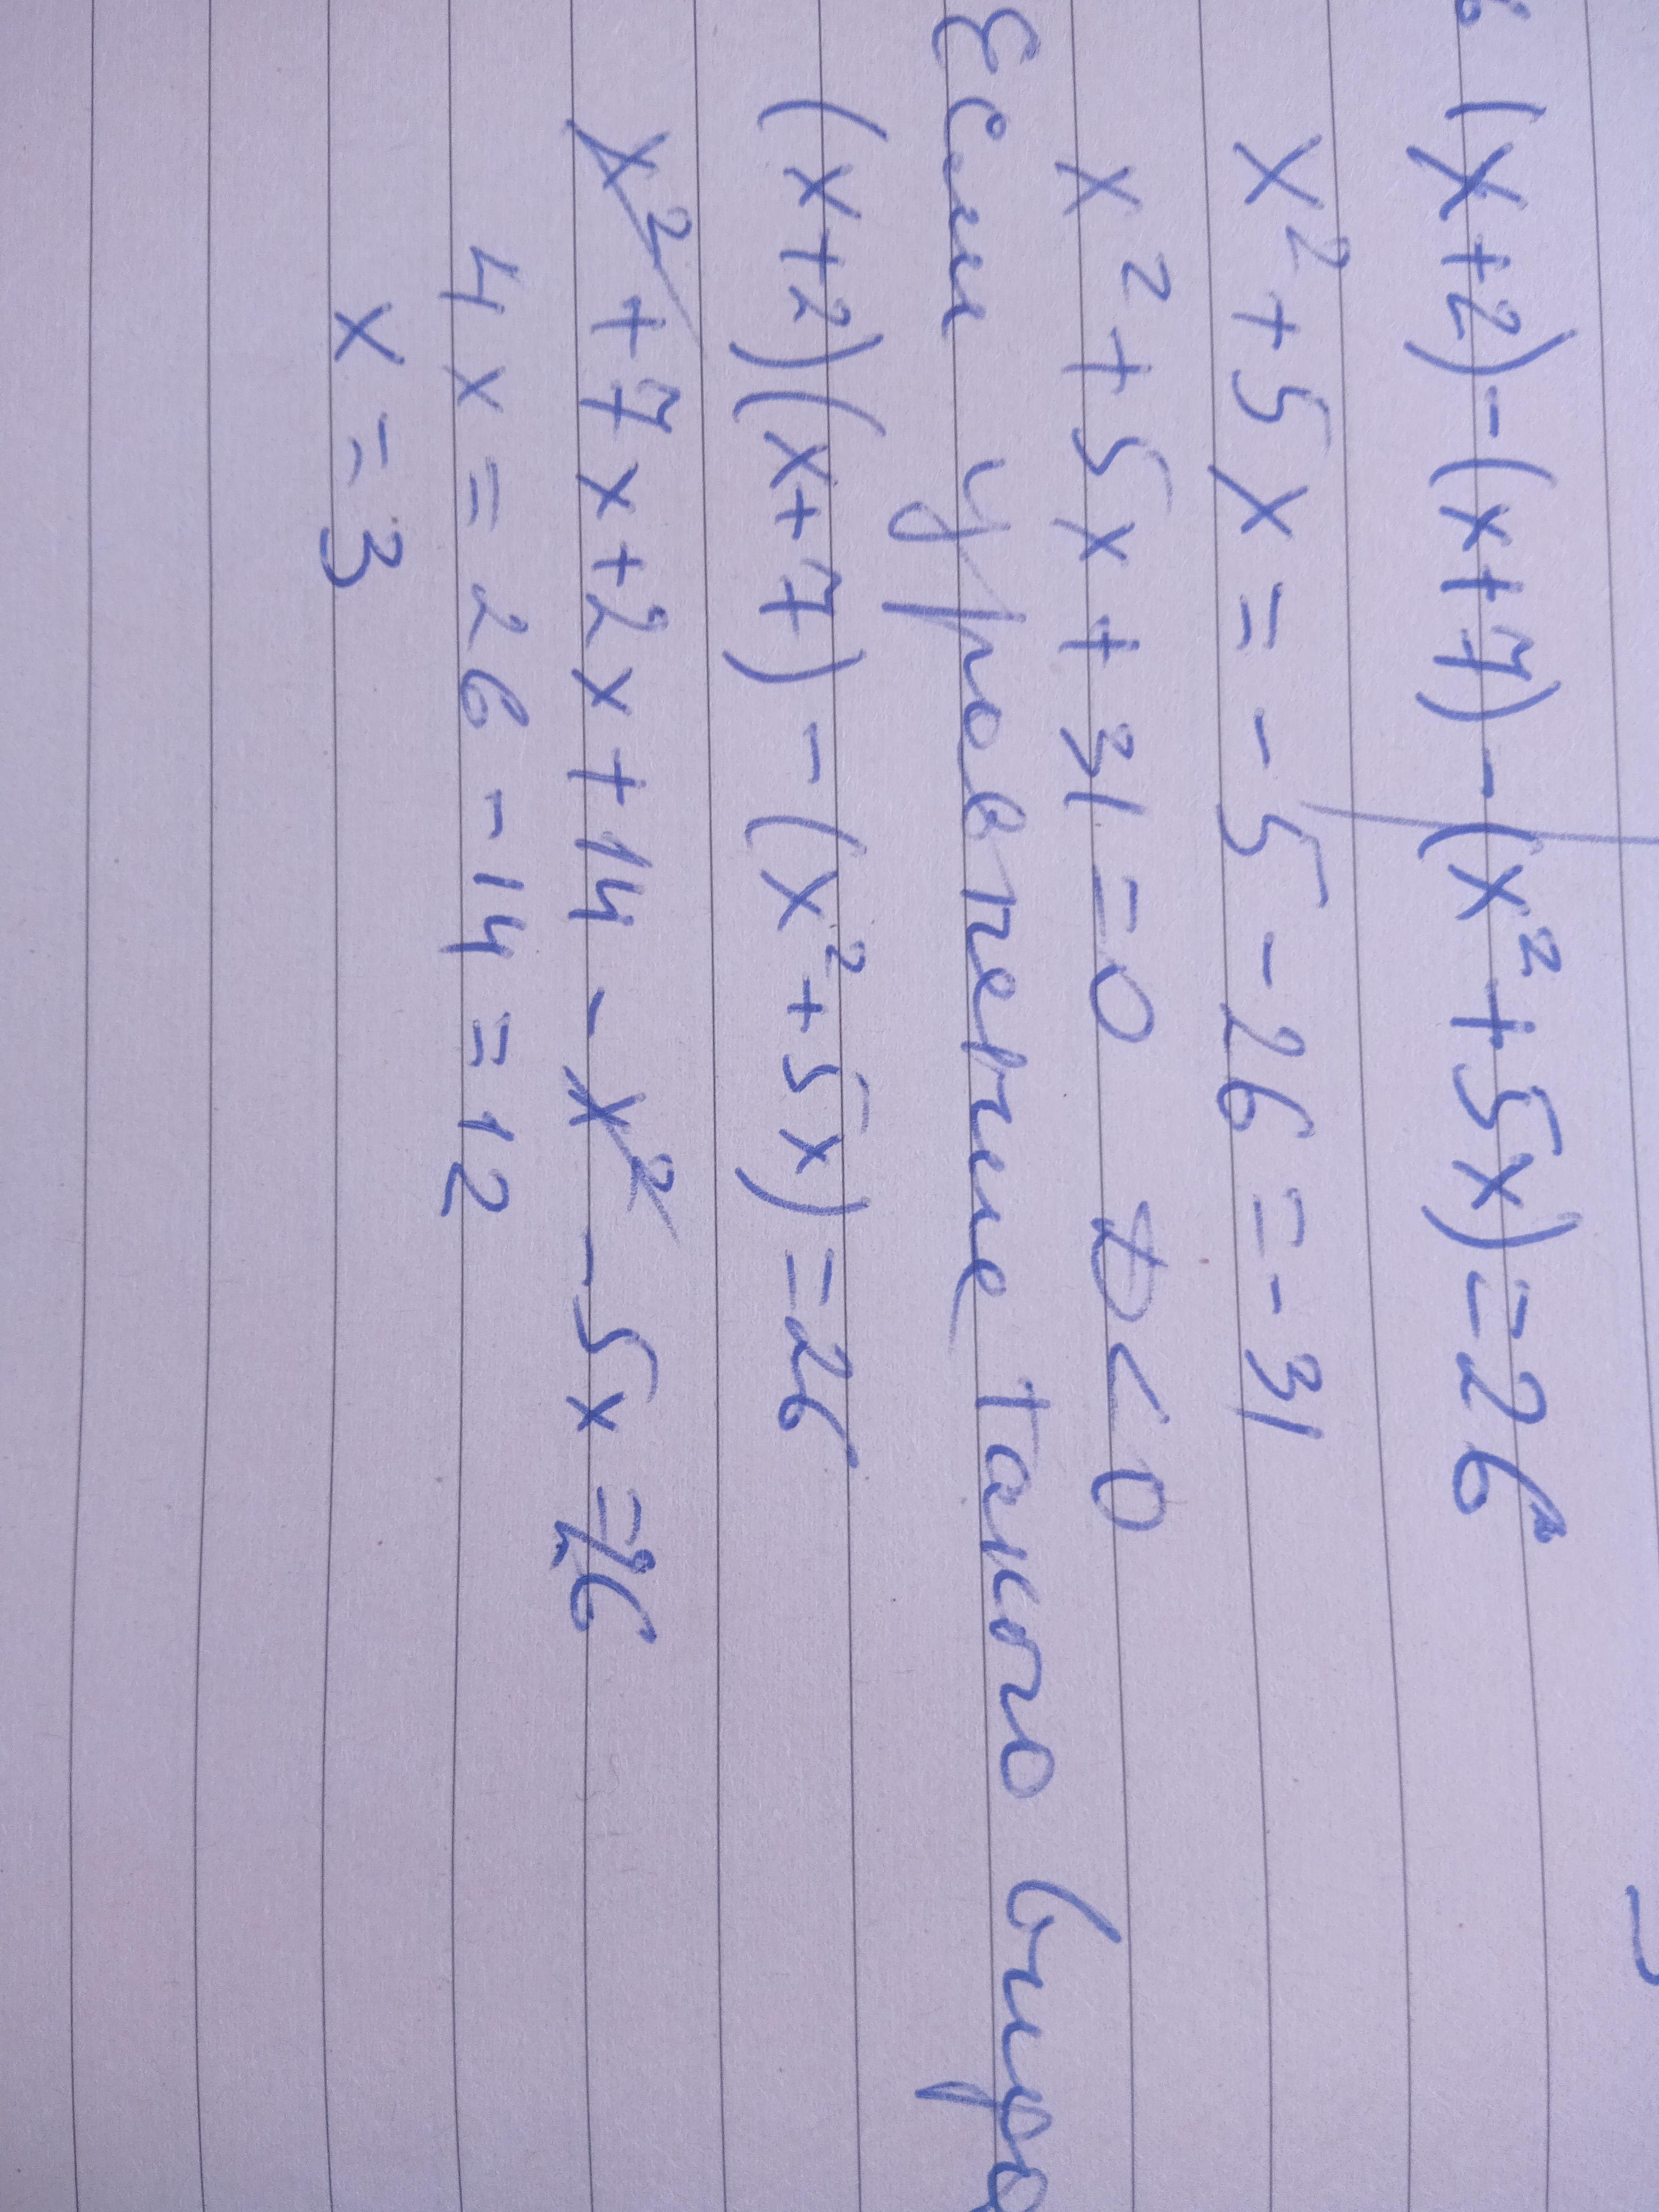 (x+2)-(x+7)-(x²+5x)=26
x²+5x=-5-26=-31
x²+5x+31=0 D<0
Если уравнение такого вида
(x+2)(x+7)-(x²+5x)=26
x²+7x+2x+14-x²-5x=26
4x=26-14=12
x=3